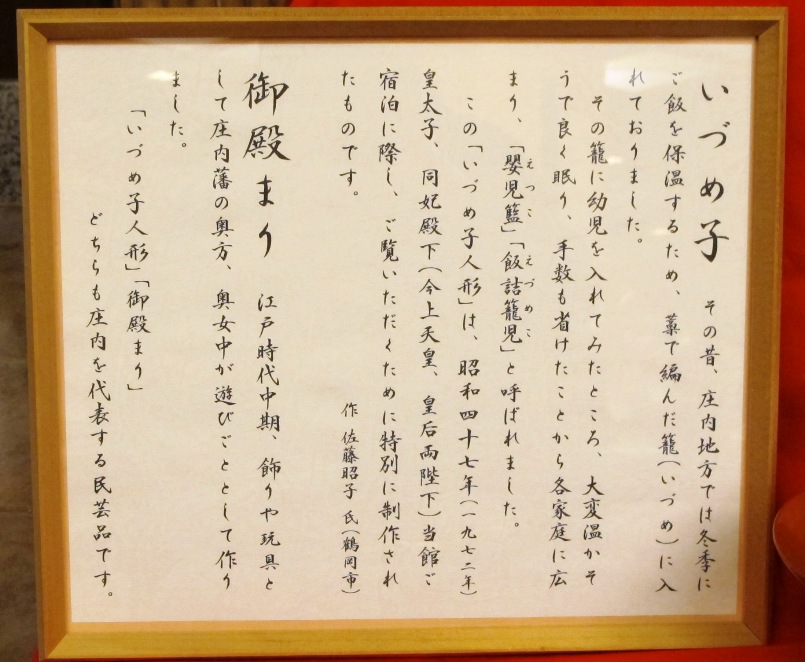 いづめ子 その昔、庄内地方では冬季に
ご飯を保温するため、藁で編んだ籠(いづめ)に入
れておりました。
その籠に幼児を入れてみたところ、大変温かそ
うで良く眠り、手数も省けたことから各家庭に広
まり、「嬰児籃」「飯詰籠児」と呼ばれました。
えつこ
えづめこ
この「いづめ子人形」は、昭和四十七年(一九七二年)
皇太子、同妃殿下(今上天皇、皇后両陛下)当館ご
宿泊に際し、ご覧いただくために特別に制作され
たものです。
作 佐藤昭子 氏(鶴岡市)
御殿まり 江戸時代中期、飾りや玩具と
して庄内藩の奥方、奥女中が遊びごととして作り
ました。
「いづめ子人形」「御殿まり」
どちらも庄内を代表する民芸品です。